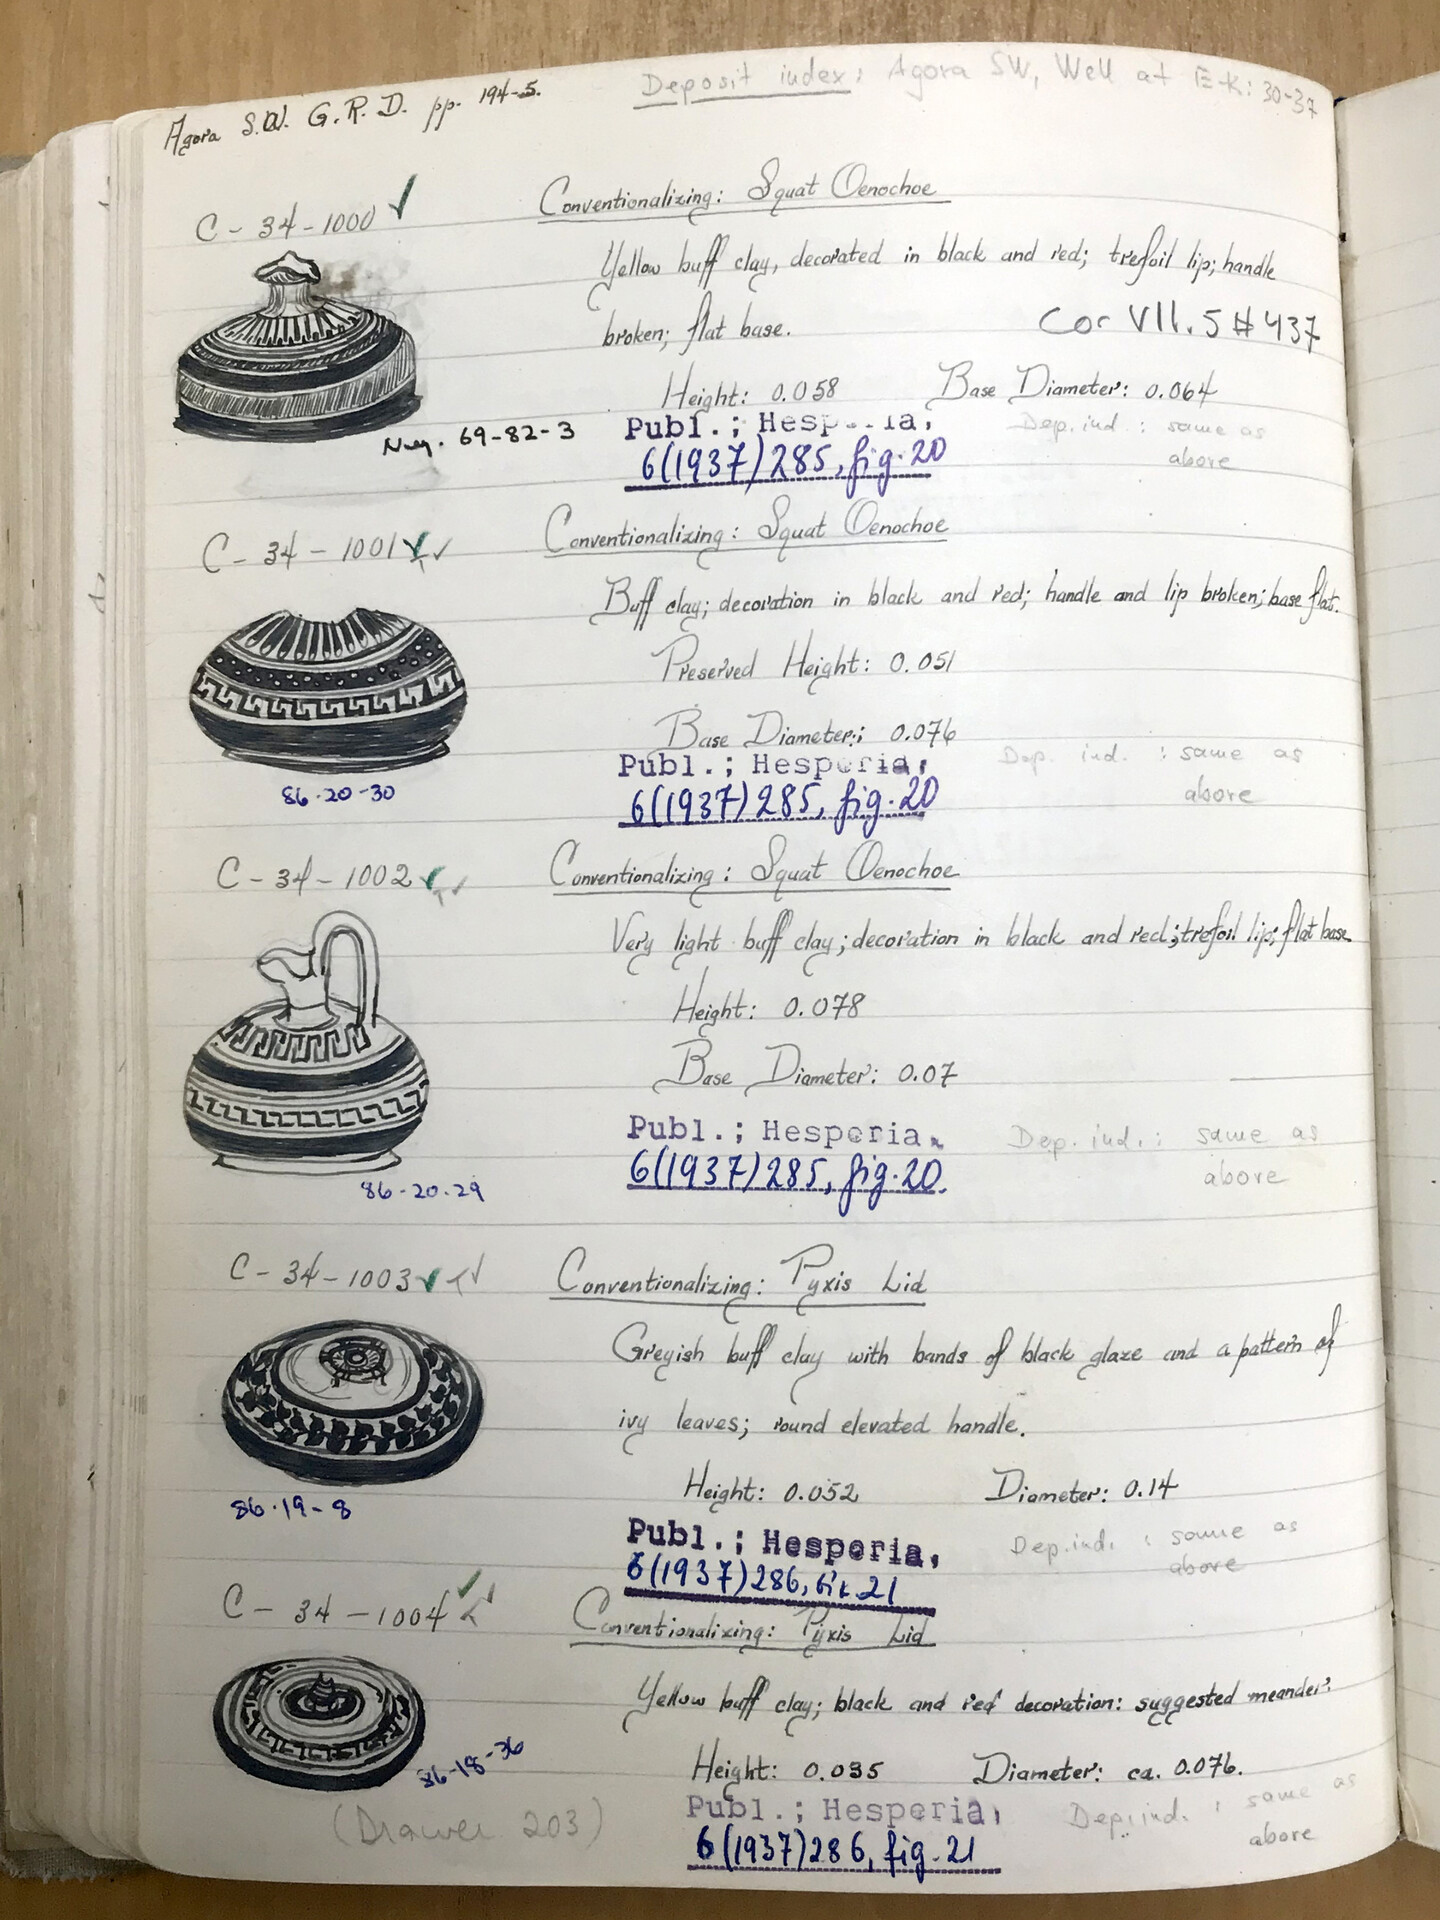 Deposit index: Agora SW, Well at E-K: 30-37
Agora S.W. G.R.D. pp. 194-5.
C-34-1000
Conventionalizing: Squat Oenochoe
Yellow buff clay, decorated in black and red; trefoil lip; handle
broken; flat base.
Cor VII.5 #437
Height: 0.058 Base Diameter: 0.064
Neg. 69-82-3
Publ.; Hesperia,
6(1937)285, fig.20
Dep. ind.: same as
above
C-34-1001
Conventionalizing: Squat Oenochoe
Buff clay; decoration in black and red; handle and lip broken; base flat.
Preserved Height: 0.051
Base Diameter: 0.076
86-20-30
Publ.; Hesperia,
6(1937)285, fig.20
Dep. ind.: same as
above
C-34-1002
Conventionalizing: Squat Oenochoe
Very light buff clay; decoration in black and red; trefoil lip; flat base
Height: 0.078
Base Diameter: 0.07
86-20-29
Publ.; Hesperia,
6(1937)285, fig.20.
Dep. ind.: same as
above
C-34-1003
Conventionalizing: Pyxis Lid
Greyish buff clay with bands of black glaze and a pattern of
ivy leaves; round elevated handle.
Height: 0.052 Diameter: 0.14
86-19-8
Publ.; Hesperia,
6(1937)286, fig.21
Dep. ind.: same as
above
C-34-1004
Conventionalizing: Pyxis Lid
Yellow buff clay; black and red decoration: suggested meander.
Height: 0.035 Diameter: ca. 0.076.
86-18-36
(Drawer 203)
Publ.; Hesperia,
6(1937)286, fig.21
Dep. ind.: same as
above